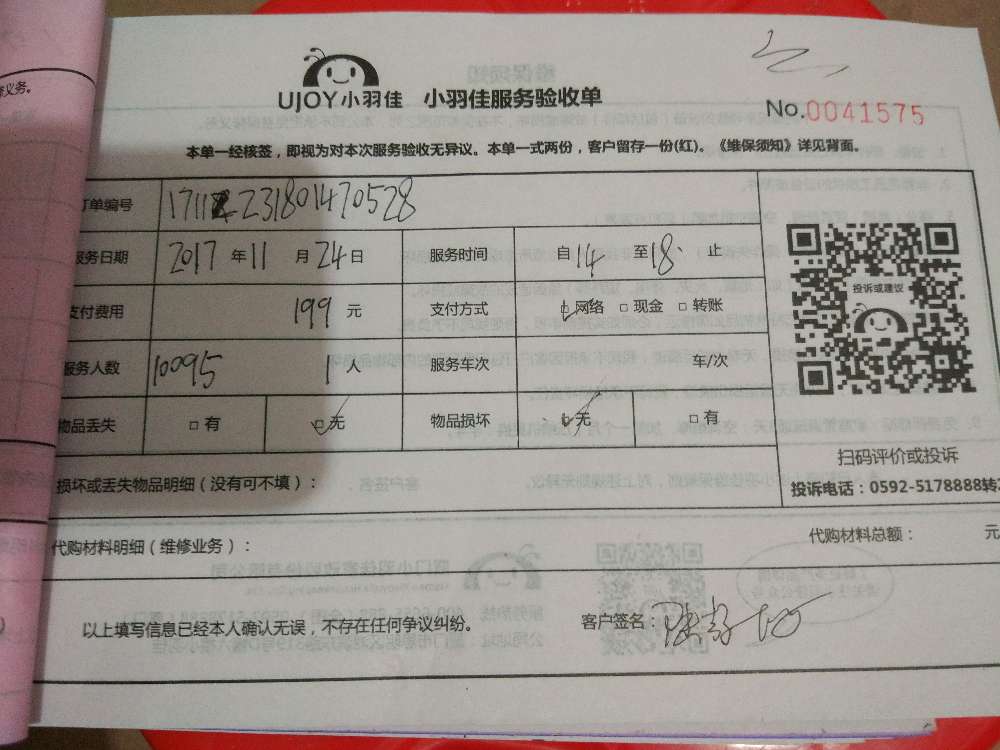 UJOY小羽佳 小羽佳服务验收单
No.0041575
本单一经核签，即视为对本次服务验收无异议。本单一式两份，客户留存一份(红)。《维保须知》详见背面。
订单编号 231801470528
服务日期 2017 年 11 月 24 日 服务时间 自 14 至 18 止
支付费用 199 元 支付方式 □网络 □现金 □转账
服务人数 10095 1 人 服务车次 车/次
物品丢失 □有 □无 物品损坏 □无 □有
投诉或建议
扫码评价或投诉
损坏或丢失物品明细（没有可不填）：
投诉电话：0592-5178888转
代购材料明细（维修业务）： 代购材料总额： 元
以上填写信息已经本人确认无误，不存在任何争议纠纷。 客户签名：